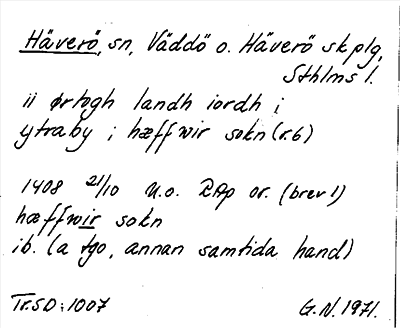 Häverö, sn, Väddö o. Häverö skplg,
Sthlms l.
ii ørtogh landh iordh i
ytraby i hæffwir sokn (r.6)
1408 21/10 U.o. RAp or. (brev 1)
hæffwir sokn
ib. (a tgo, annan samtida hand)
Tr.SD:1007
G.N.1971.